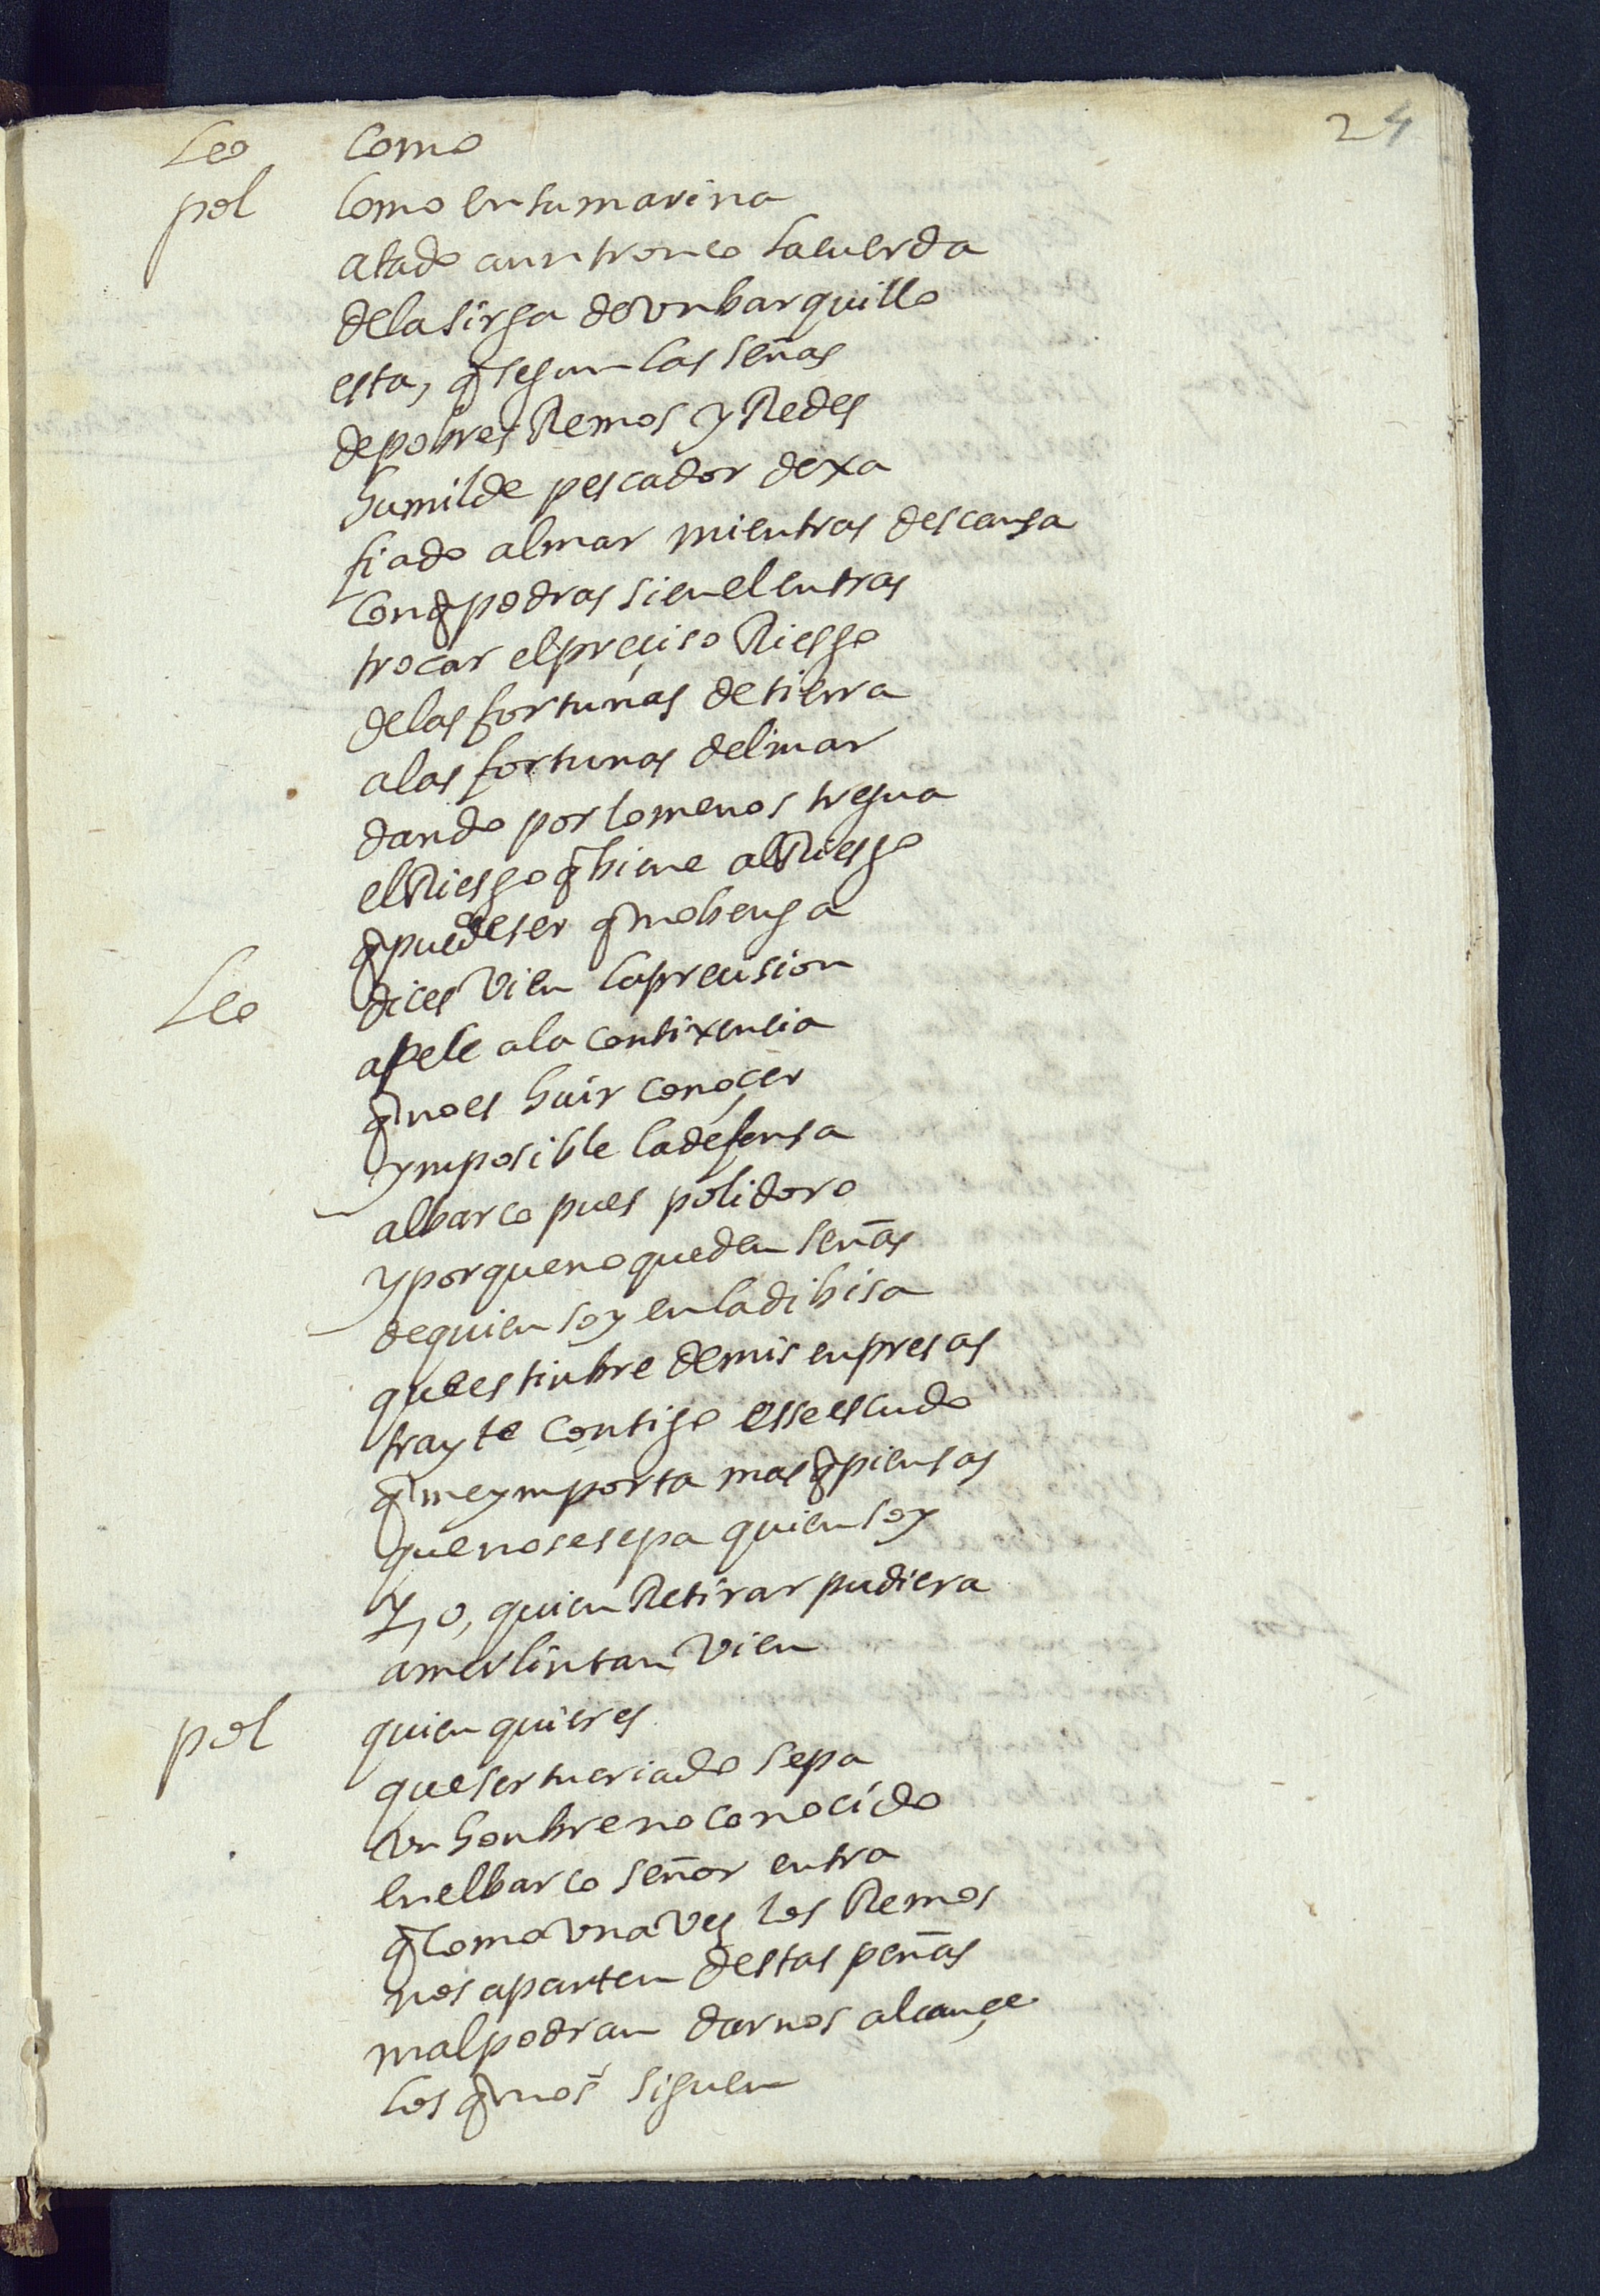 24
Leo Como
pol Como en su marina
atado a un tronco la cuerda
de la sirga de vn barquillo
esta, q̃ segun las señas
de pobres Remos y Redes
humilde pescador dexa
fiado al mar mientras descansa
con q̃ podras si en el entras
trocar el preçiso Riesgo
de las fortunas de tierra
a las fortunas del mar
dando por lo menos tregua
el Riesgo q̃ biene al Riesgo
q̃ puede ser q̃ no benga
Leo dices vien la precision
apele a la contixencia
q̃ no es huir conoçer
ymposible la defensa
al barco pues polidoro
y porque no queden señas
de quien soy en la dibisa
que es tinbre de mis enpresas
trayte contigo esse escudo
q̃ me ymporta mas q̃ piensas
que no se sepa quien soy
y, o, quien Retirar pudiera
a merlin tan vien
pol quien quieres
que ser tu criado sepa
vn honbre no conocido
en el barco señor entra
q̃ como vna vez los Remos
nos aparten destas peñas
mal podran darnos alcançe
los q̃ nos siguen